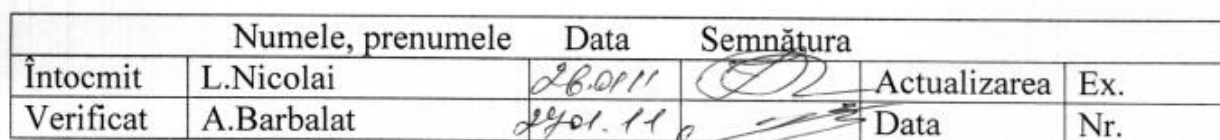 Numele, prenumele Data Semnătura
Întocmit L.Nicolai 26.0111 Actualizarea Ex.
Verificat A.Barbalat 2701.11 Data Nr.